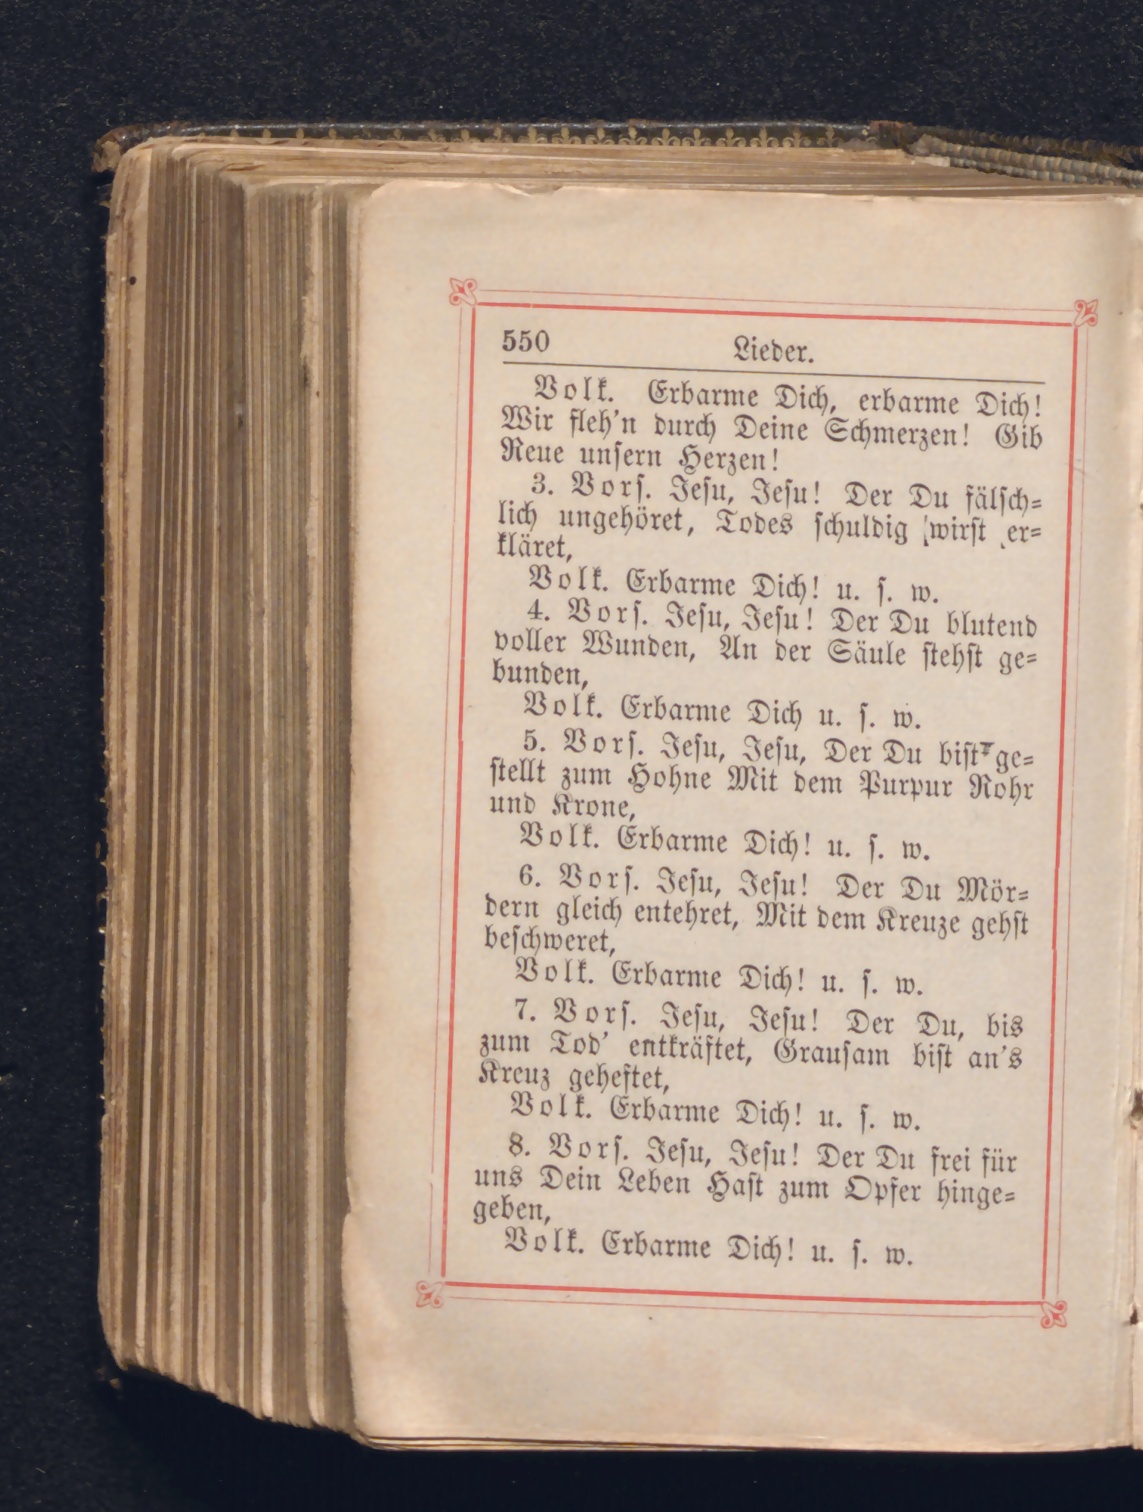 550 Lieder.
Volk. Erbarme Dich, erbarme Dich!
Wir fleh'n durch Deine Schmerzen! Gib
Reue unsern Herzen!
3. Vors. Jesu, Jesu! Der Du fälsch-
lich ungehöret, Todes schuldig wirst er-
kläret,
Volk. Erbarme Dich! u. s. w.
4. Vors. Jesu, Jesu! Der Du blutend
voller Wunden, An der Säule stehst ge-
bunden,
Volk. Erbarme Dich u. s. w.
5. Vors. Jesu, Jesu, Der Du bist ge-
stellt zum Hohne Mit dem Purpur Rohr
und Krone,
Volk. Erbarme Dich! u. s. w.
6. Vors. Jesu, Jesu! Der Du Mör-
dern gleich entehret, Mit dem Kreuze gehst
beschweret,
Volk. Erbarme Dich! u. s. w.
7. Vors. Jesu, Jesu! Der Du, bis
zum Tod' entkräftet, Grausam bist an's
Kreuz geheftet,
Volk. Erbarme Dich! u. s. w.
8. Vors. Jesu, Jesu! Der Du frei für
uns Dein Leben Hast zum Opfer hinge-
geben,
Volk. Erbarme Dich! u. s. w.